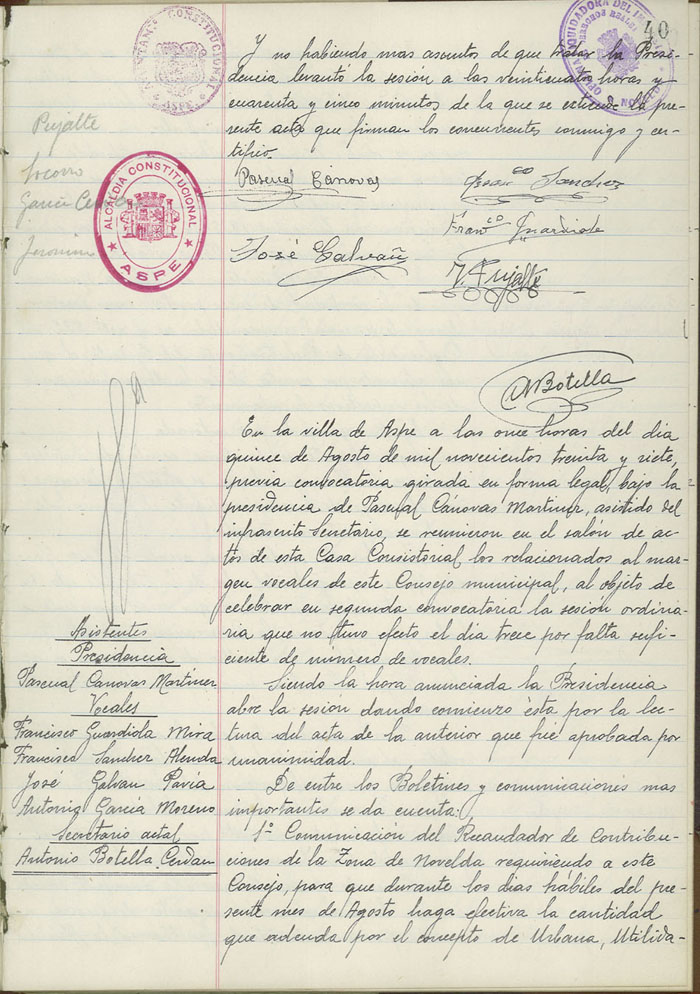 40
AYUNTAMIENTO CONSTITUCIONAL
ASPE
LIQUIDADORA DEL IM
DERECHOS REALES
NOVELDA
Y no habiendo mas asuntos de que tratar la Presi-
dencia levantó la sesión a las veinticuatro horas y
cuarenta y cinco minutos de la que se extiende la pre-
sente acta que firman los concurrentes conmigo y cer-
tifico.
Pujalte
Socorro
García
Jeronimo
ALCALDIA CONSTITUCIONAL
ASPE
Pascual Cánovas
Fran.co Sanchez
Fran.co Guardiola
José Galvañ
J. Pujalte
A Botella
En la villa de Aspe a las once horas del dia
quince de Agosto de mil novecientos treinta y siete,
previa convocatoria girada en forma legal, bajo la
presidencia de Pascual Cánovas Martinez, asistido del
infrascrito Secretario, se reunieron en el salón de ac-
tos de esta Casa Consistorial los relacionados al mar-
gen vocales de este Consejo municipal, al objeto de
celebrar en segunda convocatoria la sesión ordina-
ria que no tuvo efecto el dia trece por falta sufi-
ciente de número de vocales.
Siendo la hora anunciada la Presidencia
abre la sesión dando comienzo ésta por la lec-
tura del acta de la anterior que fué aprobada por
unanimidad.
De entre los Boletines y comunicaciones mas
importantes se da cuenta:
1º Comunicación del Recaudador de Contribu-
ciones de la Zona de Novelda requiriendo a este
Consejo, para que durante los dias hábiles del pre-
sente mes de Agosto haga efectiva la cantidad
que adeuda por el concepto de Urbana, Utilida-
Asistentes
Presidencia
Pascual Cánovas Martinez
Vocales
Francisco Guardiola Mira
Francisco Sanchez Alenda
José Galvañ Pavía
Antonio García Moreno
Secretario actal
Antonio Botella Cerdan